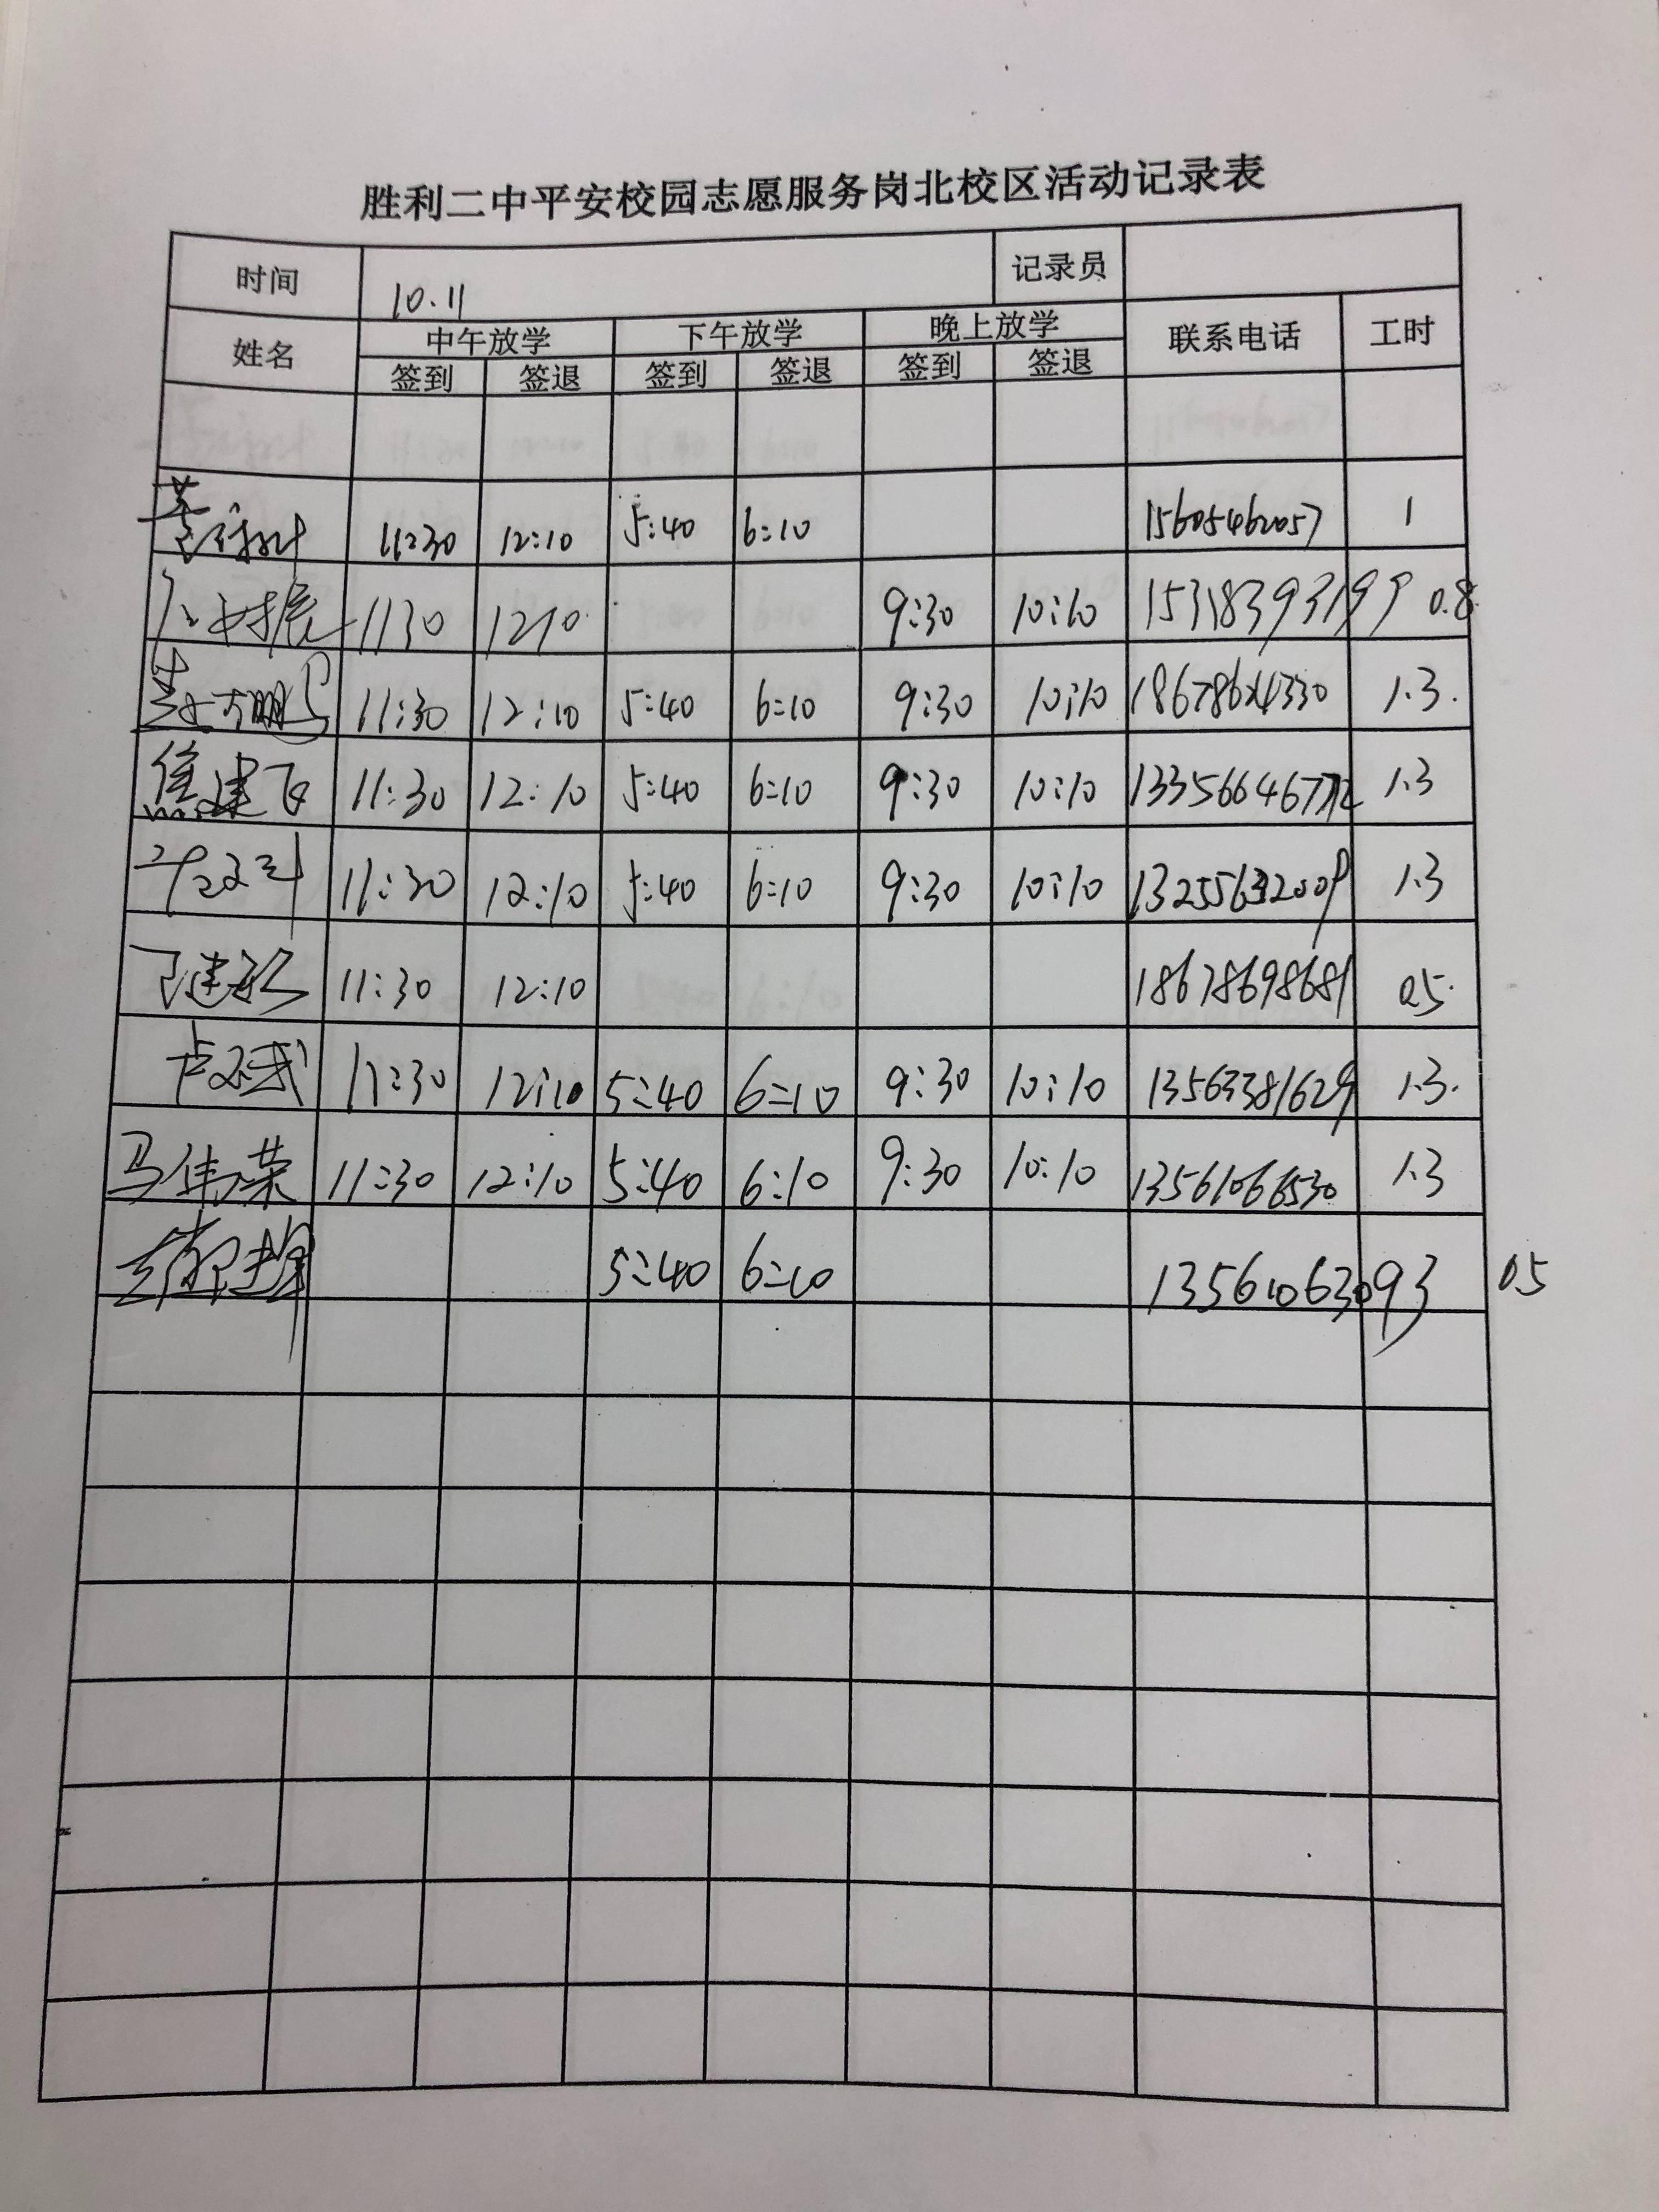 胜利二中平安校园志愿服务岗北校区活动记录表
时间 10.11 记录员
姓名 中午放学 下午放学 晚上放学 联系电话 工时
签到 签退 签到 签退 签到 签退
11:30 12:10 5:40 6:10 15605462057 1
1130 1210 9:30 10:10 15318393199 0.8
11:30 12:10 5:40 6:10 9:30 10:10 1.3.
焦建飞 11:30 12:10 5:40 6:10 9:30 10:10 1.3
11:30 12:10 5:40 6:10 9:30 10:10 1.3
11:30 12:10 18678698681 0.5.
11:30 12:10 5:40 6:10 9:30 10:10 13563381629 1.3.
马伟荣 11:30 12:10 5:40 6:10 9:30 10:10 13561066530 1.3
5:40 6:10 13561063093 0.5